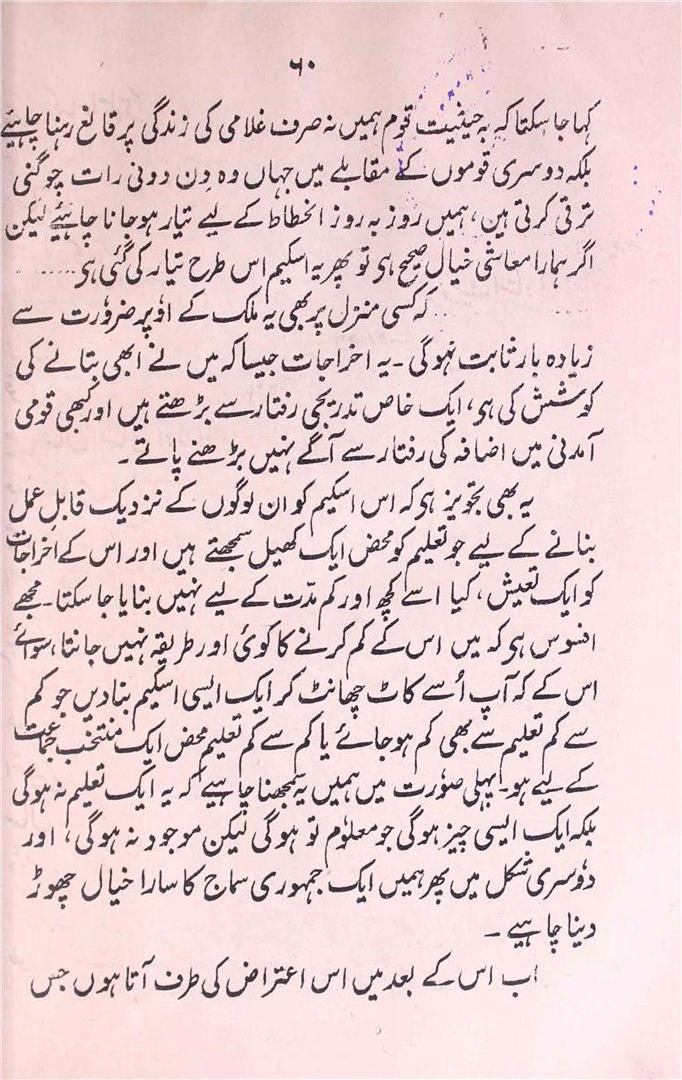 ۶۰
کہا جا سکتا کہ بہ حیثیت قوم ہمیں نہ صرف غلامی کی زندگی پر قانع رہنا چاہیئے
بلکہ دوسری قوموں کے مقابلے میں جہاں وہ دن دونی رات چوگنی
ترقی کرتی ہیں، ہمیں روز بہ روز انحطاط کے لیے تیار ہو جانا چاہیئے لیکن
اگر ہمارا معاشی خیال صحیح ہی تو پھر یہ اسکیم اس طرح تیار کی گئی ہی .....
..... کہ کسی منزل پر بھی یہ ملک کے اوٗپر ضروٗرت سے
زیادہ بار ثابت نہوگی ۔ یہ اخراجات جیسا کہ میں نے ابھی بتانے کی
کوشش کی ہی، ایک خاص تدریجی رفتار سے بڑھتے ہیں اور کبھی قومی
آمدنی میں اضافہ کی رفتار سے آگے نہیں بڑھنے پاتے ۔
یہ بھی تجویز ہی کہ اس اسکیم کو ان لوگوں کے نزدیک قابلِ عمل
بنانے کے لیے جو تعلیم کو محض ایک کھیل سمجھتے ہیں اور اس کے اخراجات
کو ایک تعیش، کیا اسے کچھ اور کم مدّت کے لیے نہیں بنایا جا سکتا ۔ مجھے
افسوس ہی کہ میں اس کے کم کرنے کا کوئی اور طریقہ نہیں جانتا، سوائے
اس کے کہ آپ اُسے کاٹ چھانٹ کر ایک ایسی اسکیم بنا دیں جو کم
سے کم تعلیم سے بھی کم ہو جائے یا کم سے کم تعلیم محض ایک منتخب جماعت
کے لیے ہو ۔ پہلی صوٗرت میں ہمیں یہ سمجھنا چاہیے کہ یہ ایک تعلیم نہ ہوگی
بلکہ ایک ایسی چیز ہوگی جو معلوٗم تو ہوگی لیکن موجود نہ ہوگی، اور
دوٗسری شکل میں پھر ہمیں ایک جمہوری سماج کا سارا خیال چھوڑ
دینا چاہیے ۔
اب اس کے بعد میں اس اعتراض کی طرف آتا ہوں جس